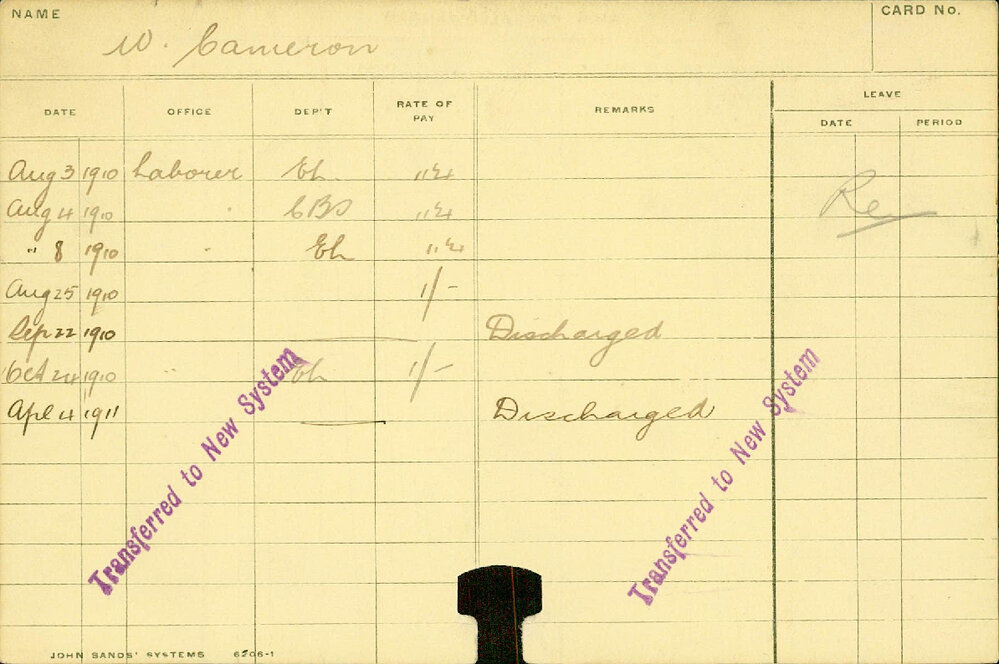 NAME
CARD No.
W. Cameron
DATE OFFICE DEP'T RATE OF PAY REMARKS LEAVE
DATE PERIOD
Aug 3 1910 Laborer Eh
Aug 4 1910 " CBS
" 8 1910 " Eh
Aug 25 1910 1/-
Sep 22 1910 Discharged
Oct 24 1910 " Eh 1/-
Apl 4 1911 Discharged
Re
Transferred to New System
Transferred to New System
JOHN SANDS' SYSTEMS 6206-1